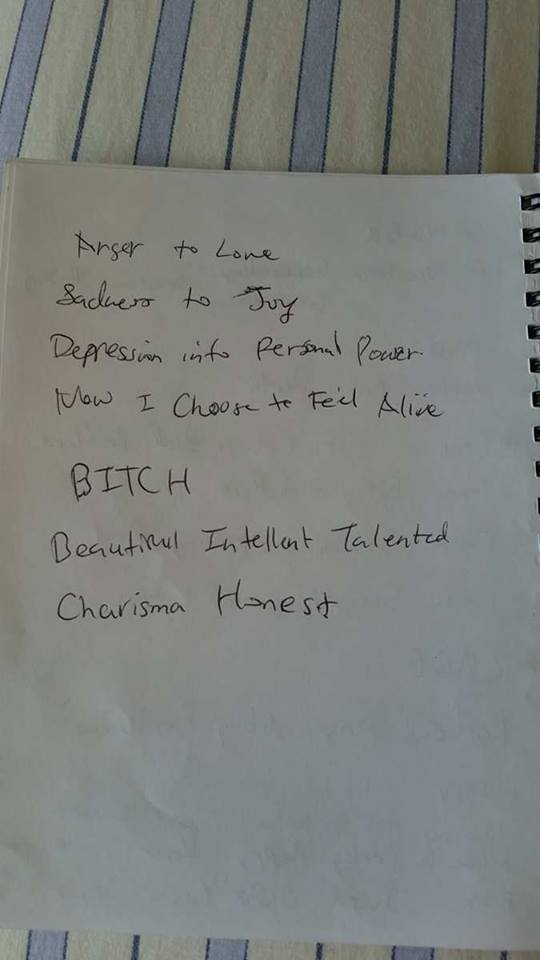 Anger to Love
Sadness to Joy
Depression into Personal Power
Now I Choose to Feel Alive
BITCH
Beautiful Intellent Talented
Charisma Honest